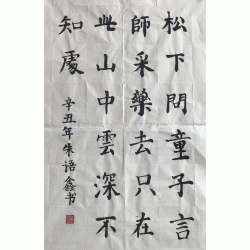 松下問童子言
師采藥去只在
此山中雲深不
知處
辛丑年朱语鑫书